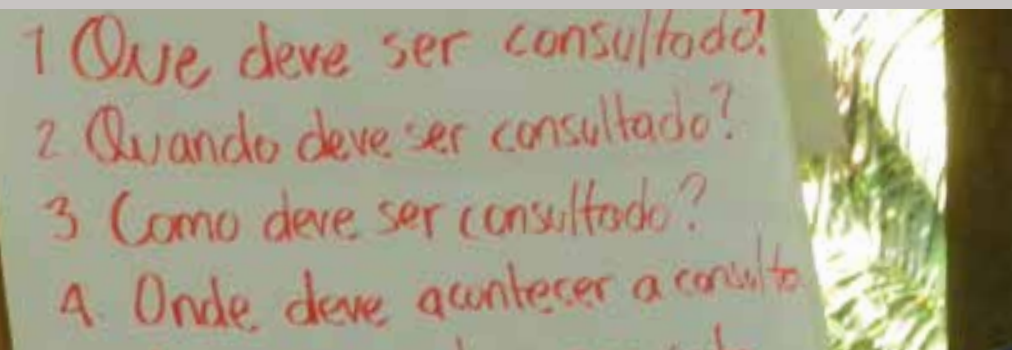 1 Que deve ser consultado?
2 Quando deve ser consultado?
3 Como deve ser consultado?
4. Onde deve acontecer a consulta